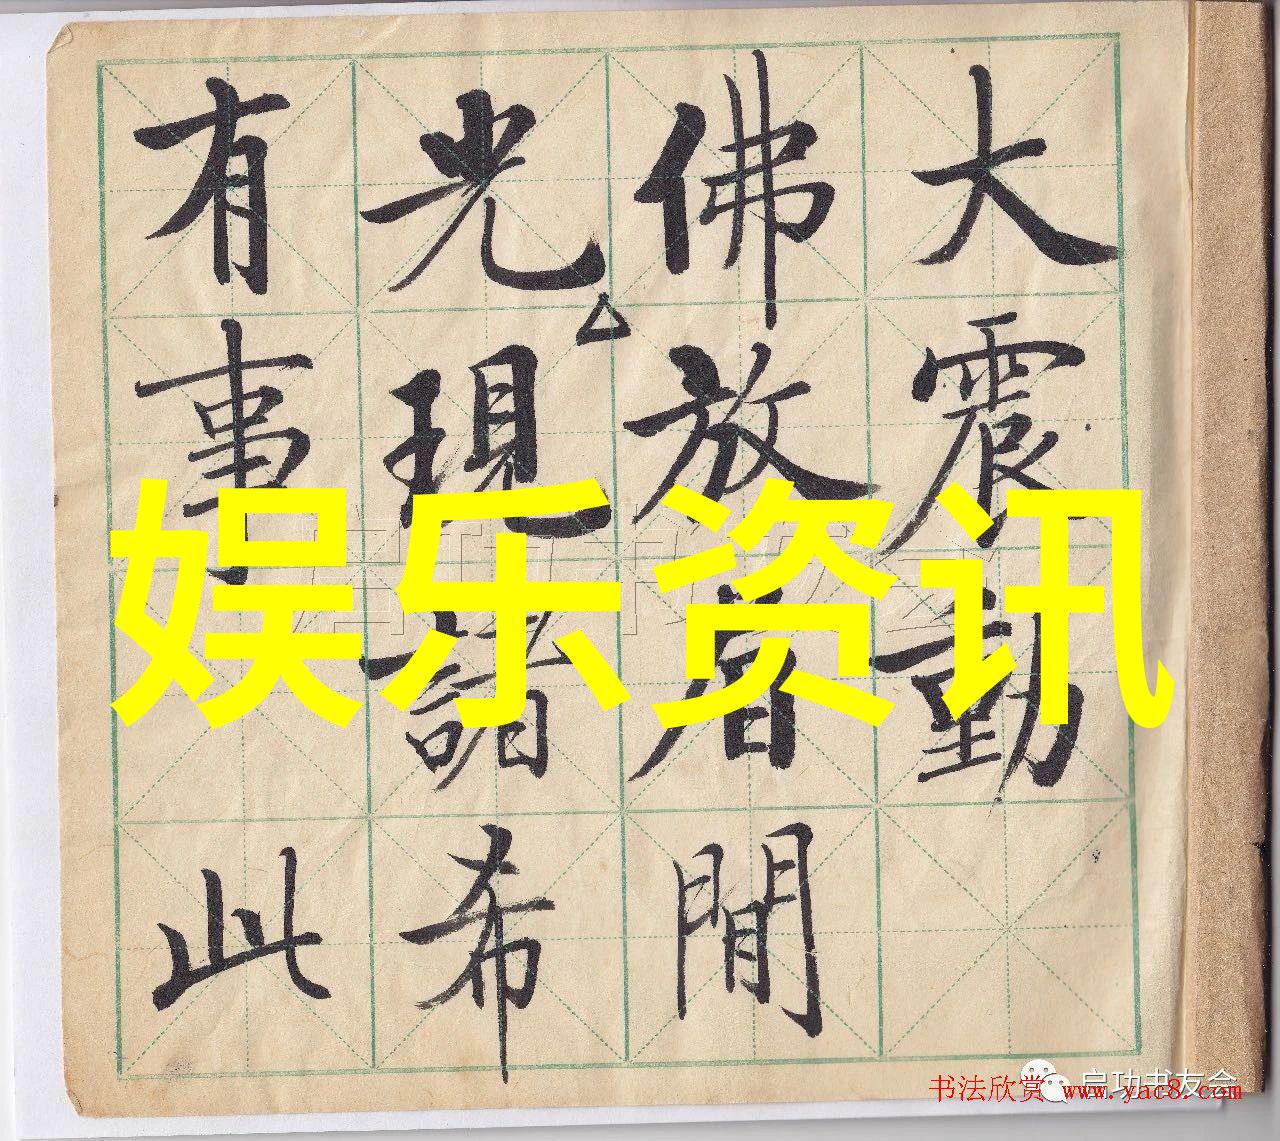 大震動
佛放眉間
光現諸希
有事此
娱乐资讯
启功书友会
书法欣赏 www.yac8.com